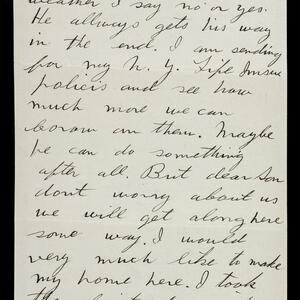 weather I say no or yes.
He allways gets his way
in the end. I am sending
for my N. Y. Life Insure
policis and see how
much more we can
borow on them. Maybe
he can do something
after all. But dear Son
dont worry about us
we will get along here
some way. I would
very much like to make
my home here. I took